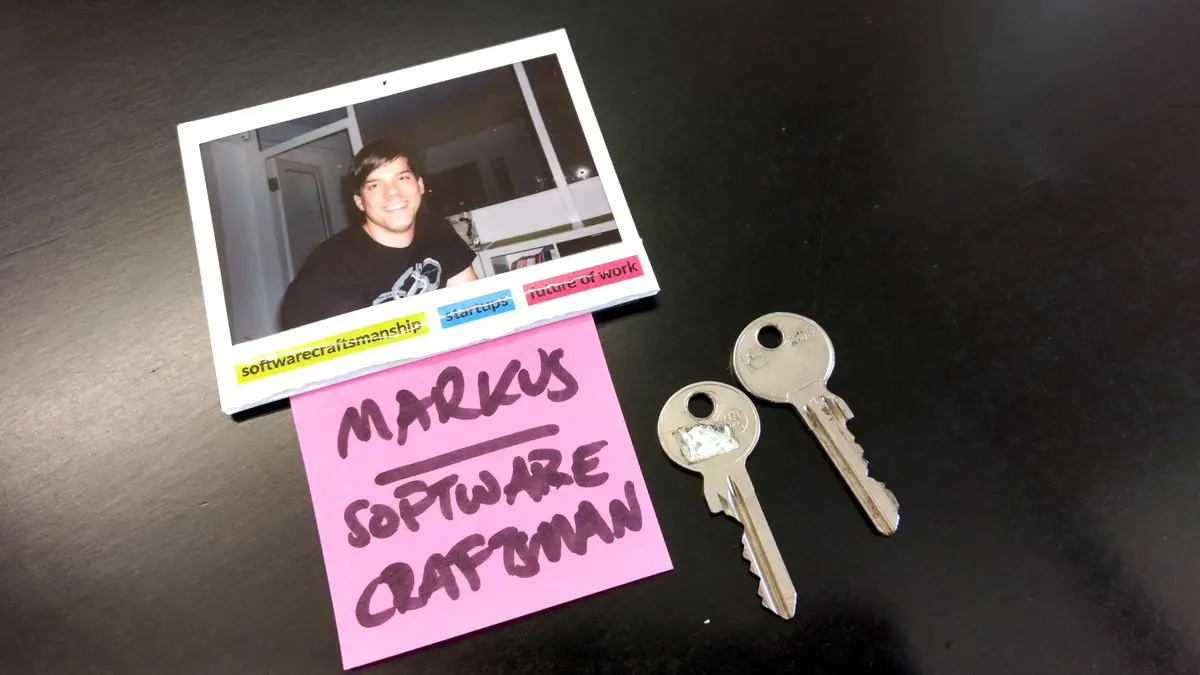 softwarecraftsmanship startups future of work
MARKUS
SOFTWARE
CRAFTSMAN